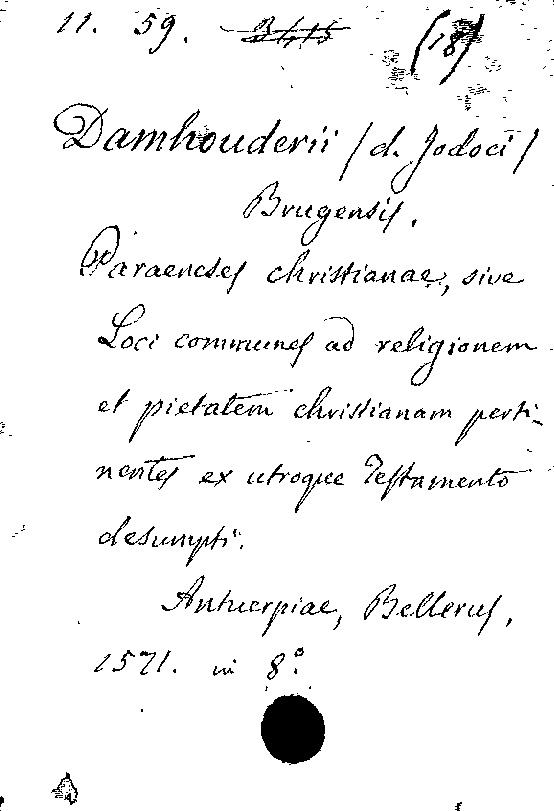 11. 59. B415 (18)
Damhouderii (d. Jodoci)
Brugensis.
Paraeneses christianae, sive
Loci communes ad religionem
et pietatem christianam perti-
nentes ex utroque Testamento
desumpti.
Antuerpiae, Bellerus,
1571. in 8°.